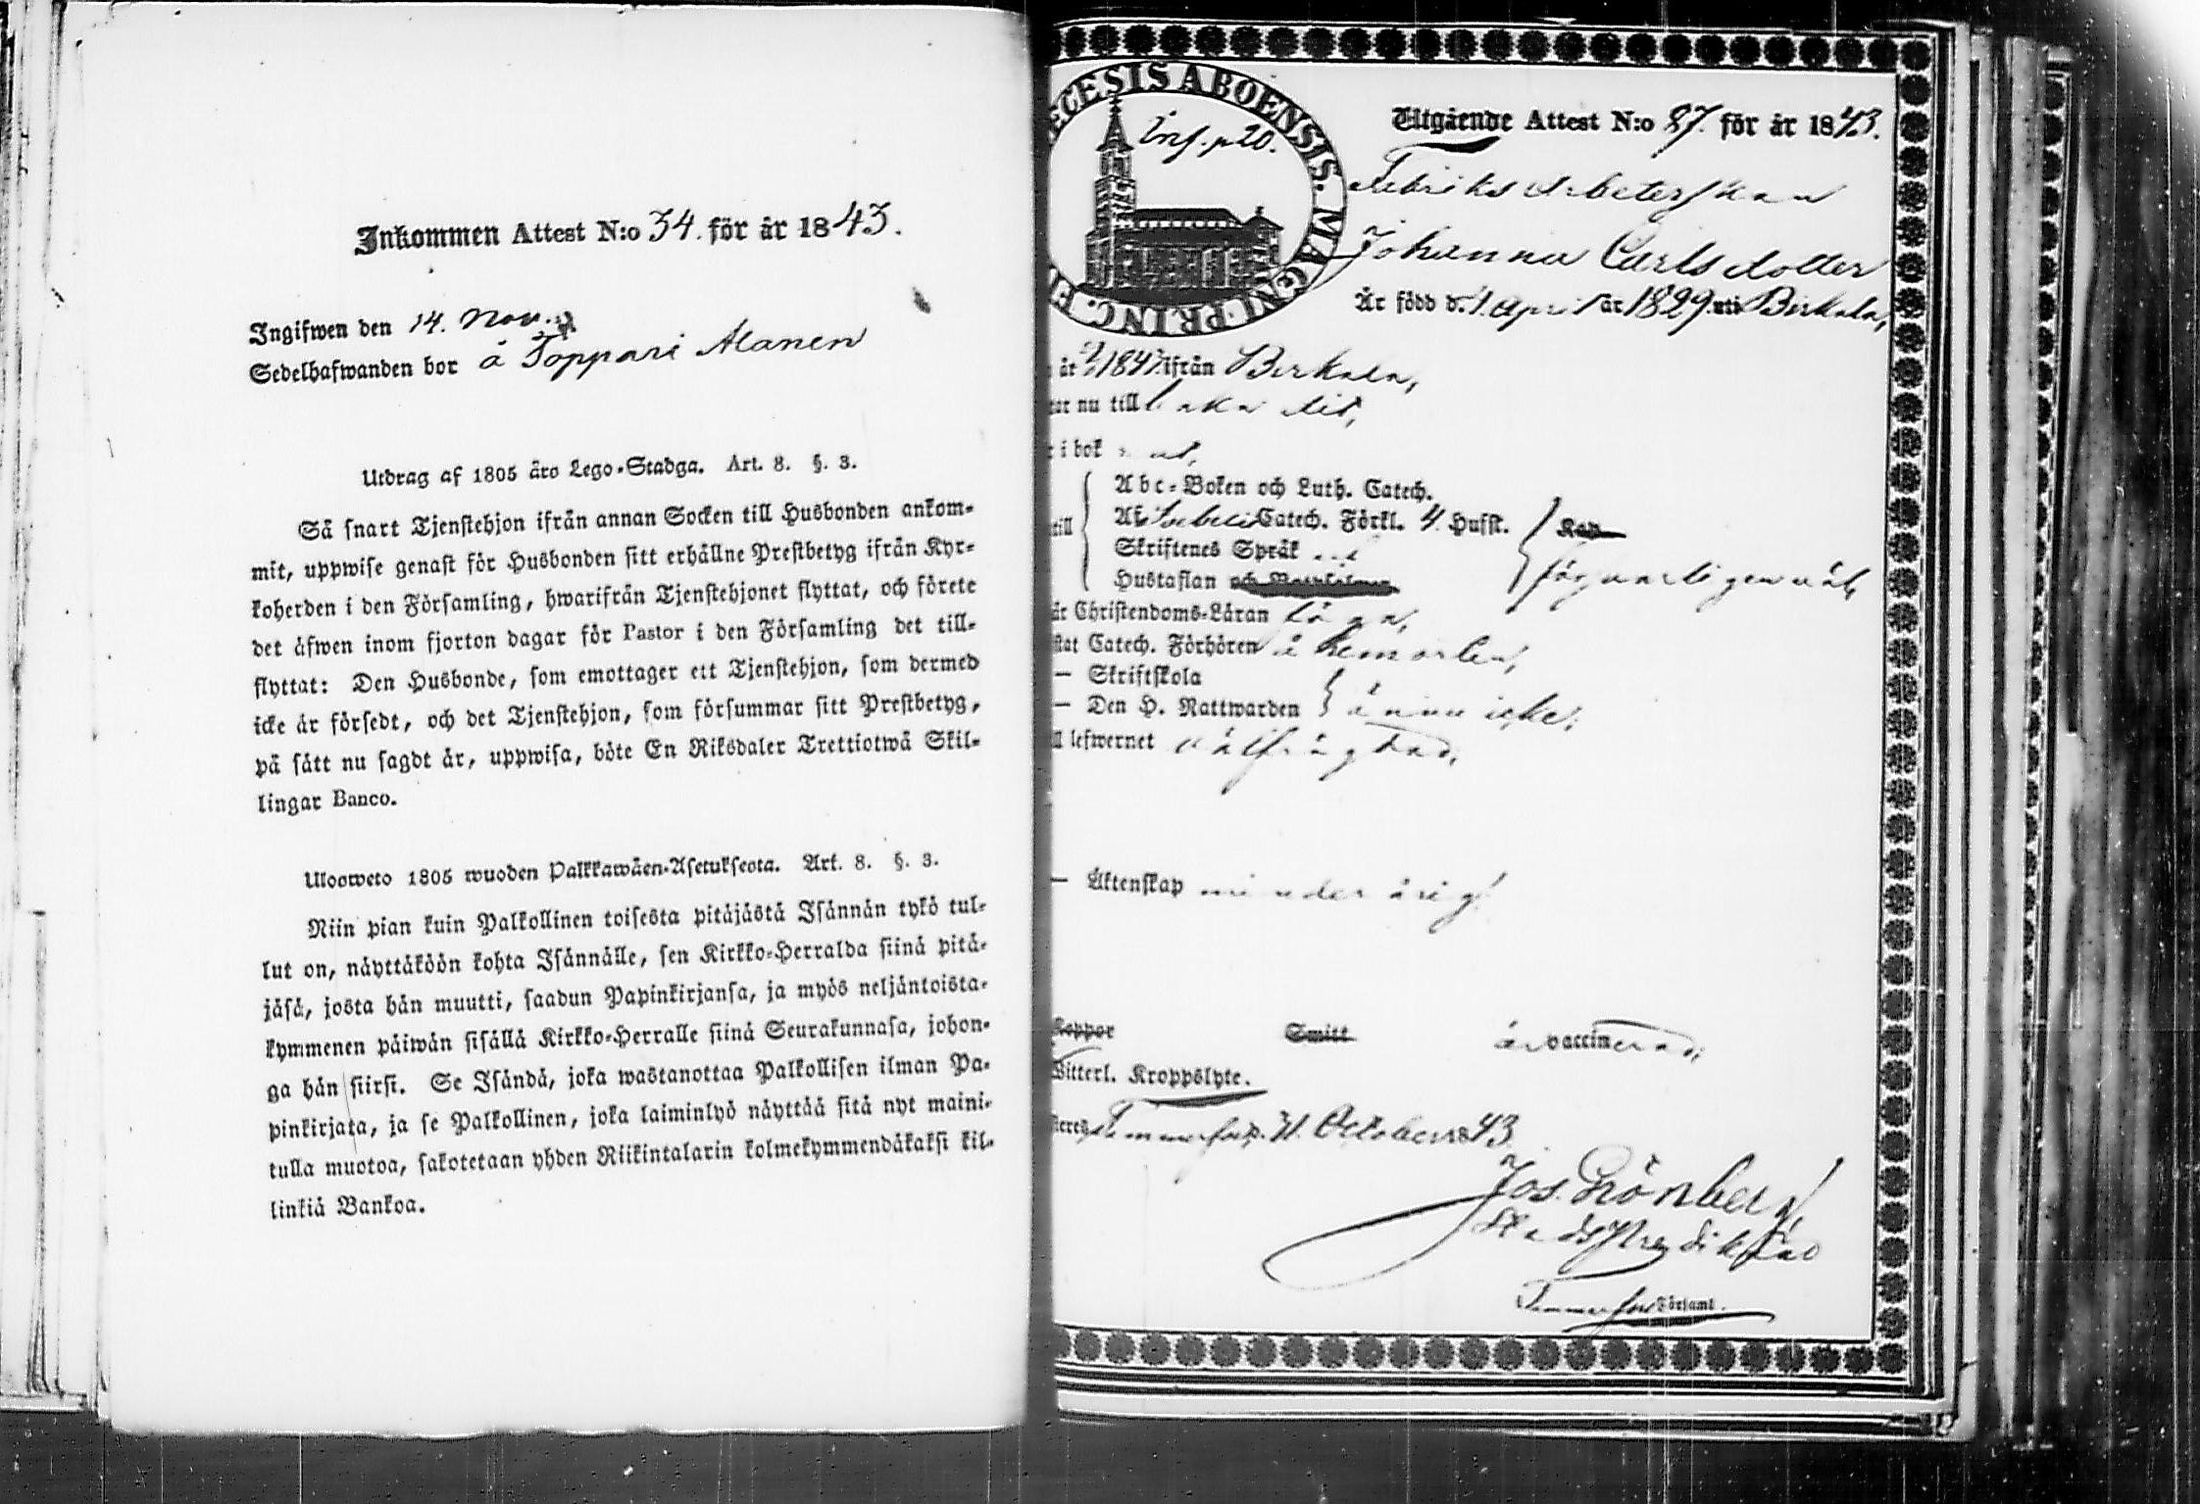 Inkommen Attest N:o 34. för år 1843.
Ingifwen den 14. Nov.
Sedelhafwanden bor å Toppari Alanen
Utdrag af 1805 års Lego-Stadga. Art. 8. §. 3.
Så snart Tjenstehjon ifrån annan Socken till Husbonden ankom-
mit, uppwise genast för Husbonden sitt erhållne Prestbetyg ifrån Kyr-
koherden i den Församling, hwarifrån Tjenstehjonet flyttat, och förete
det äfwen inom fjorton dagar för Pastor i den Församling det till-
flyttat: Den Husbonde, som emottager ett Tjenstehjon, som dermed
icke är försedt, och det Tjenstehjon, som försummar sitt Prestbetyg,
på sätt nu sagdt är, uppwisa, böte En Riksdaler Trettiotwå Skil-
lingar Banco.
Ulosweto 1805 wuoden Palkkawäen-Asetuksesta. Art. 8. §. 3.
Niin pian kuin Palkollinen toisesta pitäjästä Isännän tykö tul-
lut on, näyttäköön kohta Isännälle, sen Kirkko-Herralda siinä pitä-
jäsä, josta hän muutti, saadun Papinkirjansa, ja myös neljäntoista-
kymmenen päiwän sisällä Kirkko-Herralle siinä Seurakunnasa, johon-
ga hän siirsi. Se Isändä, joka wastanottaa Palkollisen ilman Pa-
pinkirjata, ja se Palkollinen, joka laiminlyö näyttää sitä nyt maini-
tulla muotoa, sakotetaan yhden Riikintalarin kolmekymmendäkaksi kil-
linkiä Bankoa.
ECESIS ABOENSIS. MAGNI PRINC. FI
Inf. p 20.
Utgående Attest N:o 87. för år 1843.
Fabriks Arbeterskan
Johanna Carlsdotter
Är född d. 1 April år 1829. uti Birkala,
år 1843 ifrån Birkala,
ar nu till baka dit,
i bok
Abc-Boken och Luth. Catech.
till Af Catech. Förkl. 4. Hufst. Kap
Skriftenes Språk
Hustaflan och försvarligen väl,
är Christendoms-Läran
stat Catech. Förhören å hemorten,
— Skriftskola
— Den H. Nattwarden ännu icke;
ll lefwernet välfrägdad,
— Äktenskap minderårig
Koppor Smitt är vaccinerad;
Witterl. Kroppslyte.
Tammerfors. 31. October 1843
Jos. Grönberg
StadsPredikant
Tammerfors Församl.